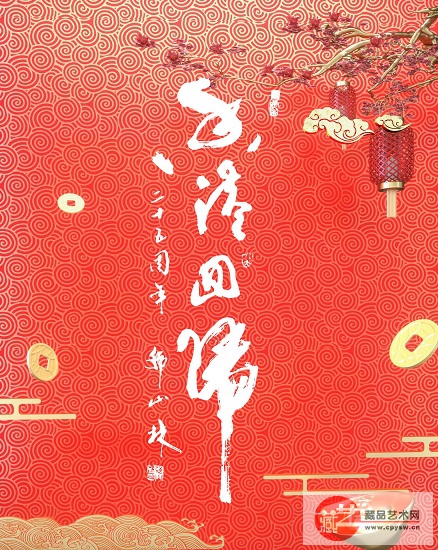 香港回归
二十五周年
韩山林
藏艺
藏品艺术网
www.cpysw.cn